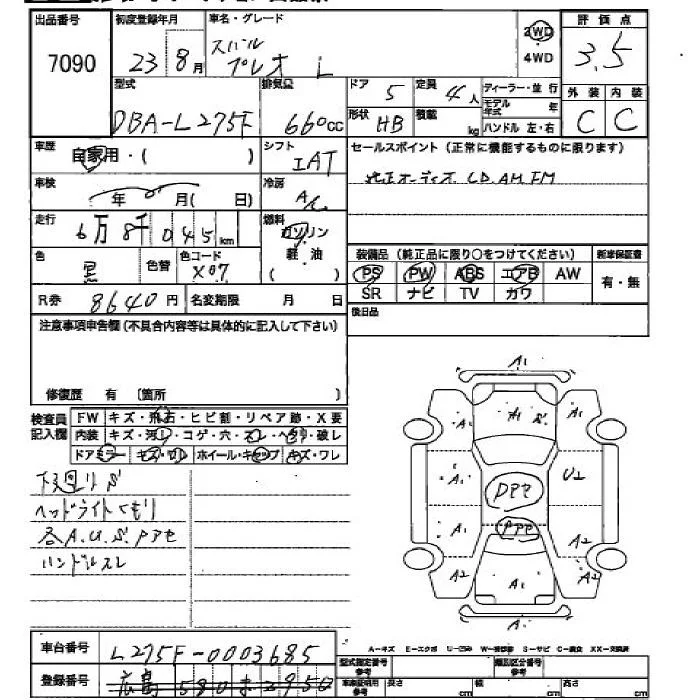 出品番号 初度登録年月 車名・グレード 2WD 4WD 評価点
7090 23 8月 スバル プレオ L 3.5
型式 排気量 ドア 5 定員 4人 ディーラー・並行 外装 内装
DBA-L275F 660cc 形状 HB 積載 kg モデル年式 年 ハンドル 左・右 C C
車歴 自家用・( ) シフト IAT セールスポイント(正常に機能するものに限ります)
車検 年 月( 日) 冷房 A/C 純正オーディオ CD.AM.FM
走行 6万8千045km 燃料 ガソリン
軽油
( )
色 黒 色替 色コード X07 装備品(純正品に限り○をつけてください) 新車保証書
PS PW ABS エアB AW 有・無
R券 8640円 名変期限 月 日 SR ナビ TV カワ
注意事項申告欄(不具合内容等は具体的に記入して下さい) 後日品
修復歴 有 [箇所 ]
検査員記入欄 FW キズ・飛石・ヒビ割・リペア跡・X要
内装 キズ・汚レ・コゲ・穴・スレ・ヘタリ・破レ
ドアミラー キズ・ワレ ホイール・キャップ キズ・ワレ
下廻りS
ヘッドライトくもり
各A.U.S Pアセ
ハンドルスレ
A1
A1 A1 S A1
A1 U2
Pアセ
A1 Pアセ A2
A2 A1 A2
A1
車台番号 L275F-0003685
A-キズ E-エクボ U-凹み W-補修跡 S-サビ C-腐食 XX-交換済
登録番号 広島 580
型式指定番号 参考 類別区分番号 参考
車庫証明用 参考 長さ cm 幅 cm 高さ cm